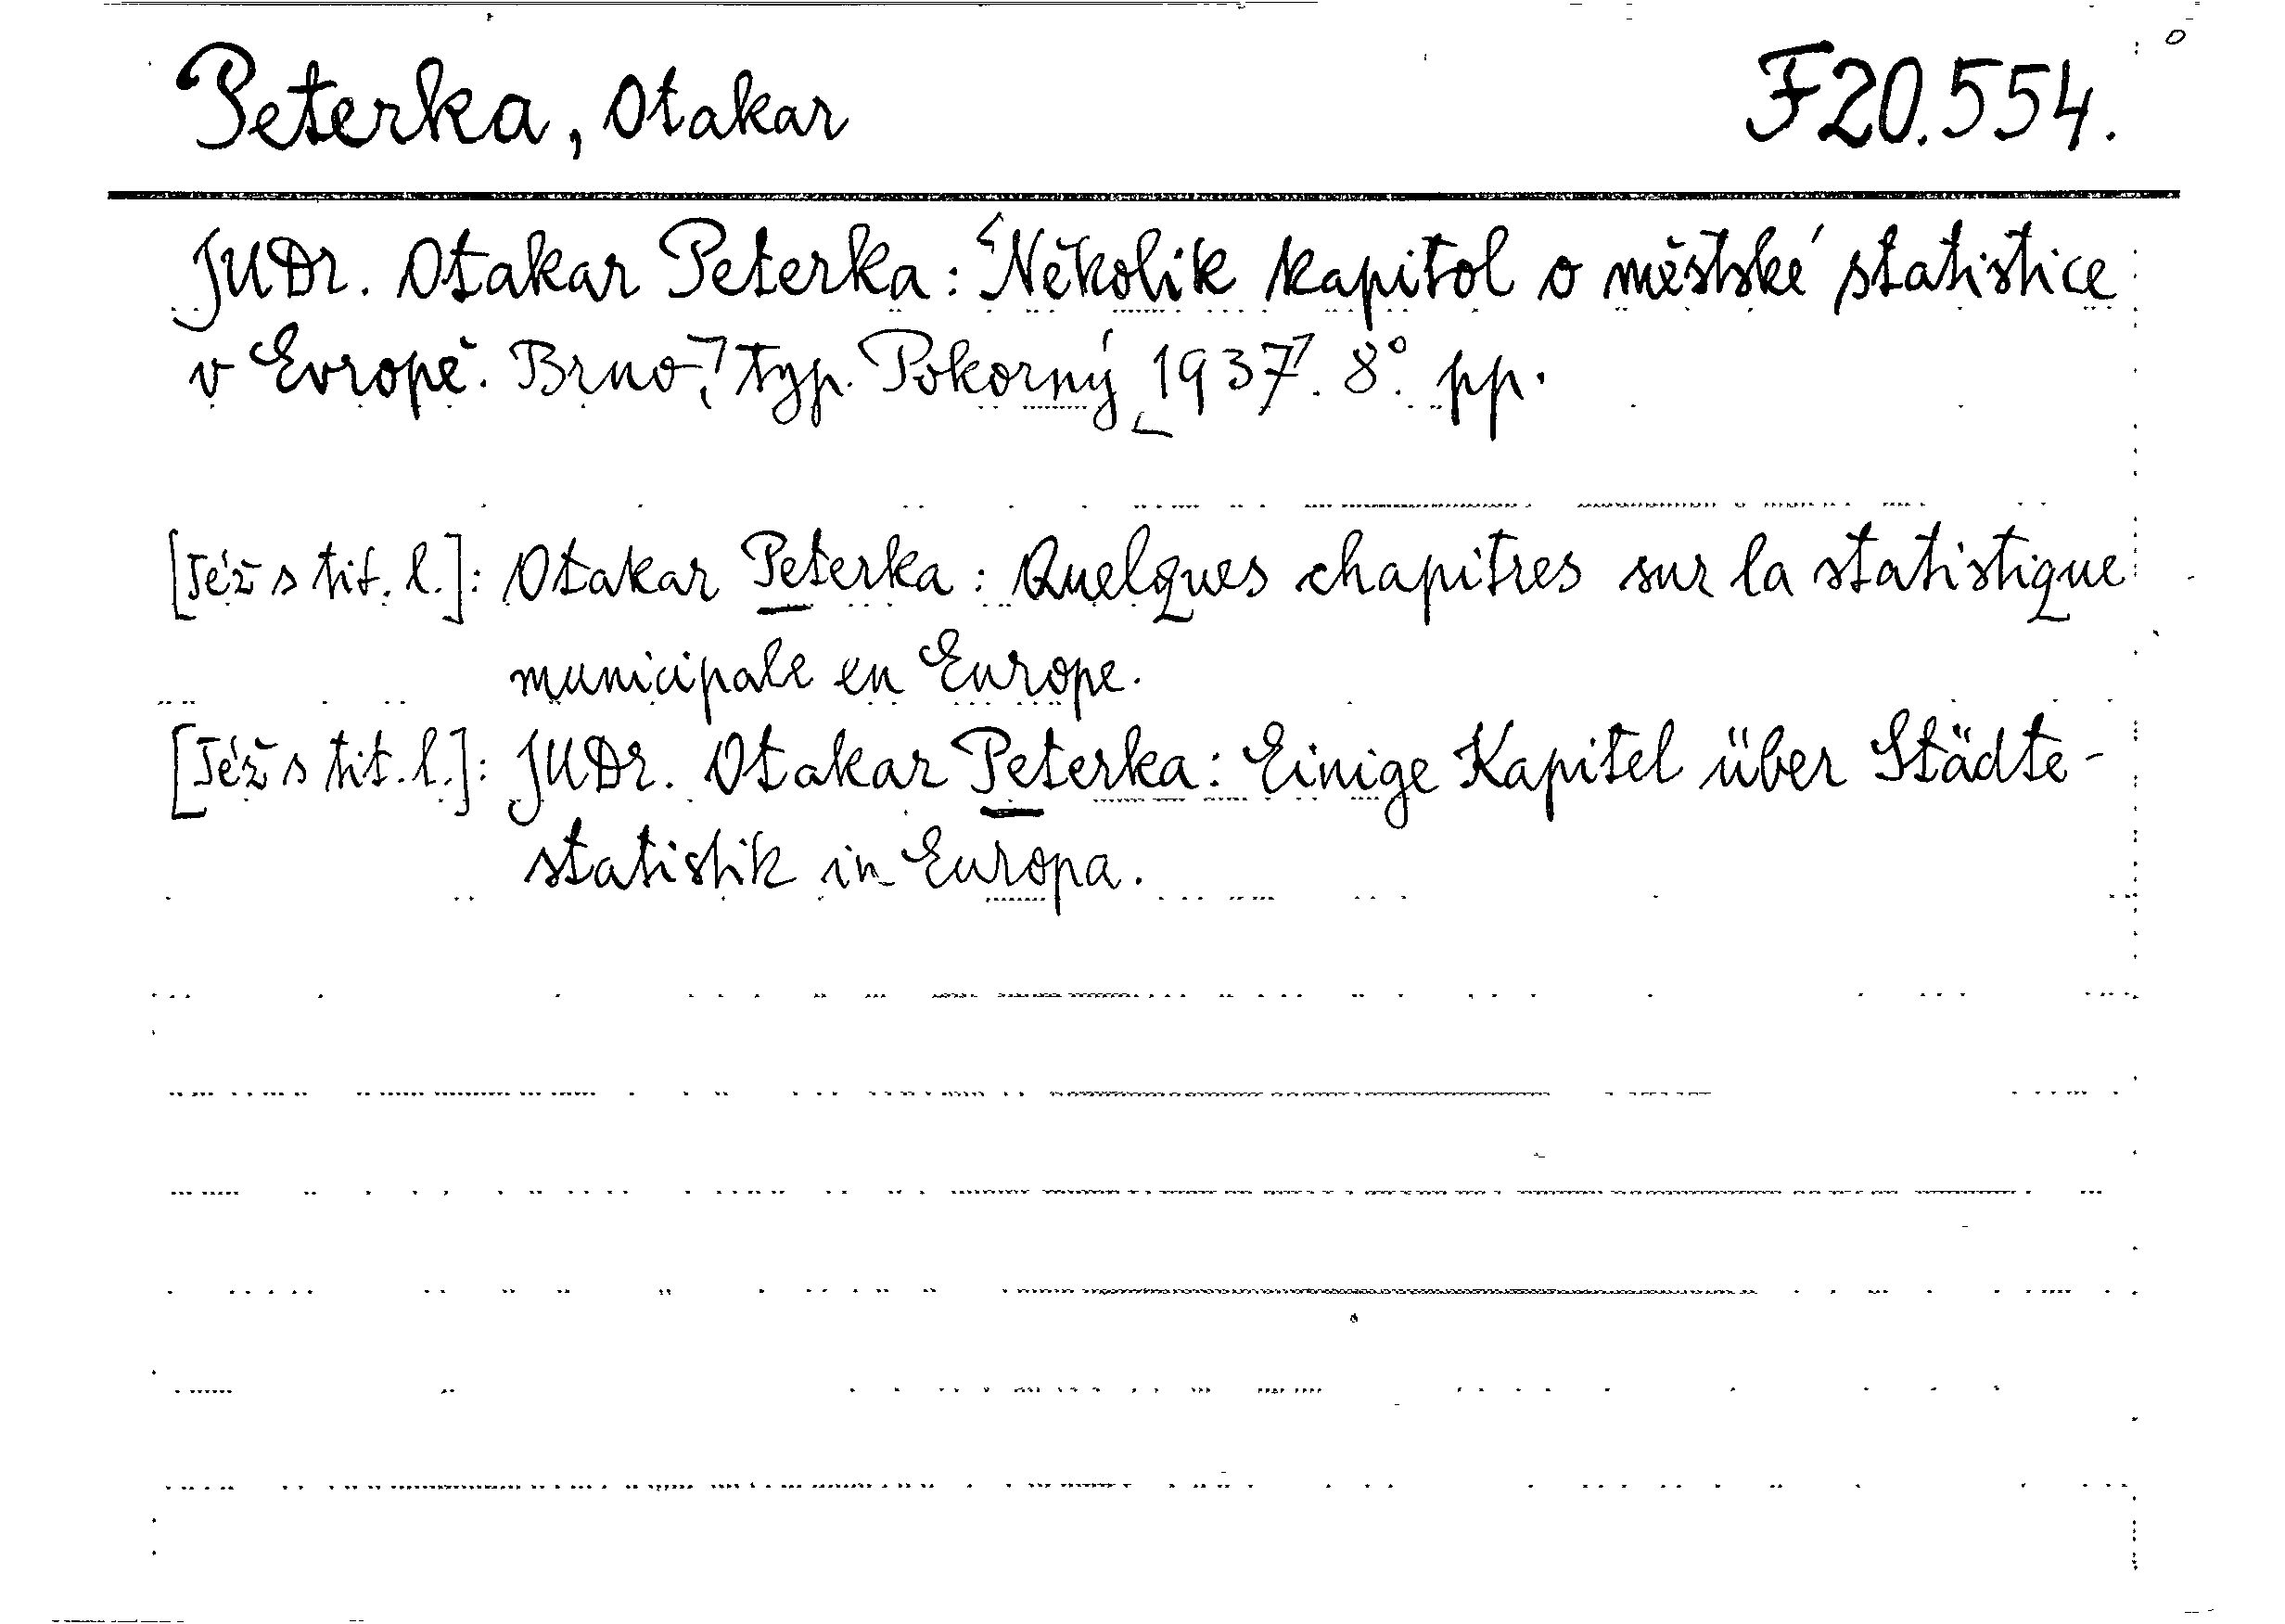 Peterka, Otakar F20.554.
JUDr. Otakar Peterka: Několik kapitol o městské statistice
v Evropě. Brno, typ. Pokorný 1937. 8°. pp.
[Též s tit. l.]: Otakar Peterka: Quelques chapitres sur la statistique
municipale en Europe.
[Též s tit. l.]: JUDr. Otakar Peterka: Einige Kapitel über Städte-
statistik in Europa.